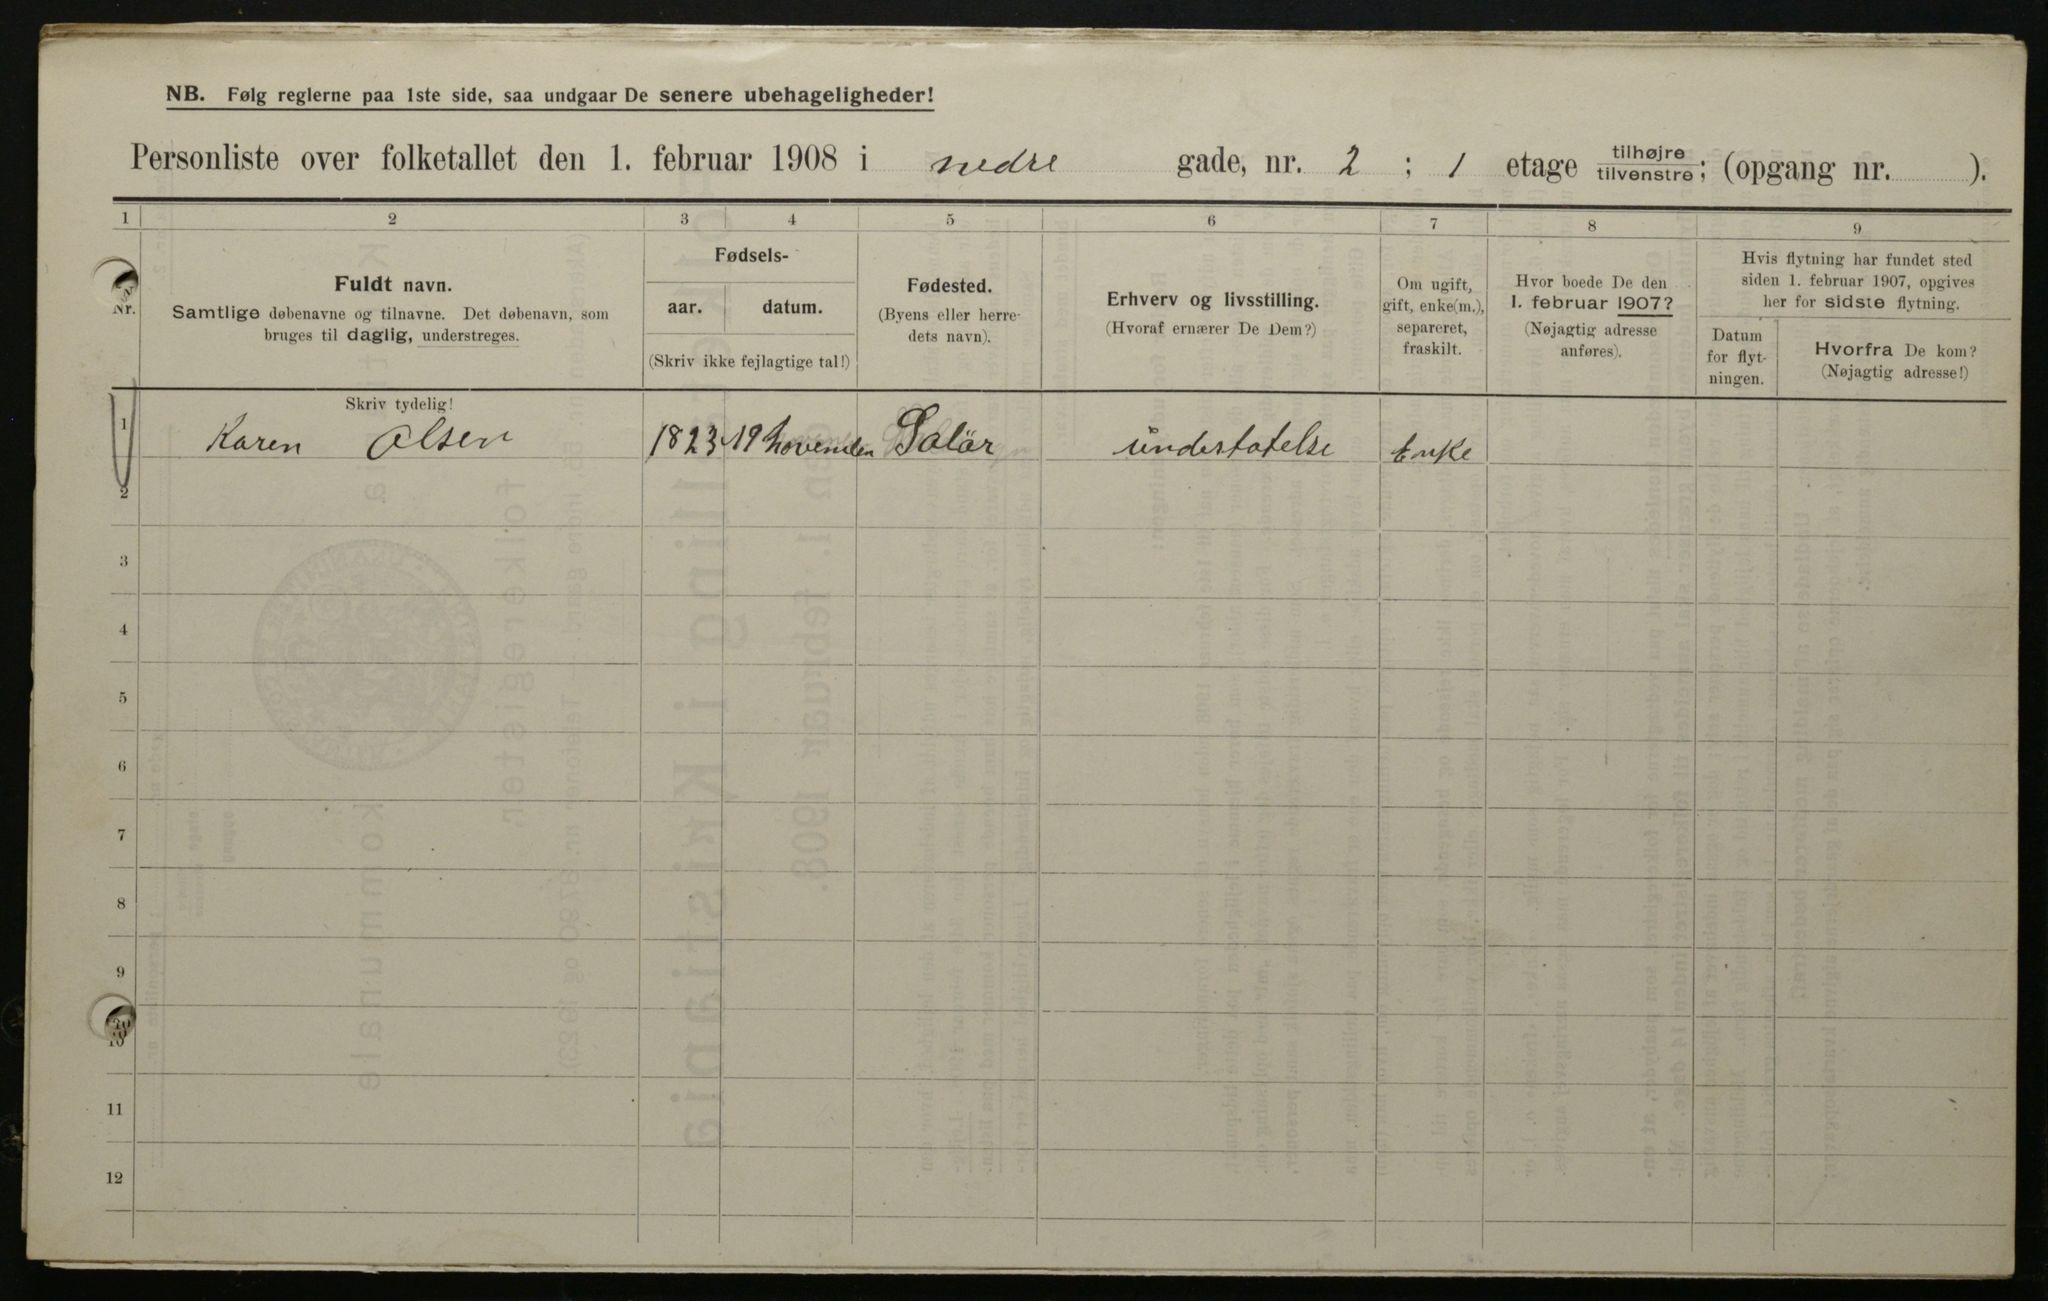 NB. Følg reglerne paa 1ste side, saa undgaar De senere ubehageligheder!
Personliste over folketallet den 1. februar 1908 i nedre gade, nr. 2 ; 1 etage tilhøjre tilvenstre; (opgang nr. ).
1 2 3 4 5 6 7 8 9
Nr.
Fuldt navn.
Samtlige døbenavne og tilnavne. Det døbenavn, som
bruges til daglig, understreges.
Skriv tydelig!
Fødsels-
aar. datum.
(Skriv ikke fejlagtige tal!)
Fødested.
(Byens eller herre-
dets navn).
Erhverv og livsstilling.
(Hvoraf ernærer De Dem?)
Om ugift,
gift, enke(m.),
separeret,
fraskilt.
Hvor boede De den
1. februar 1907?
(Nøjagtig adresse
anføres).
Hvis flytning har fundet sted
siden 1. februar 1907, opgives
her for sidste flytning.
Datum
for flyt-
ningen.
Hvorfra De kom?
(Nøjagtig adresse!)
1 Karen Olsen 1823 19 Solör understotelse Enke
2
3
4
5
6
7
8
9
10
11
12